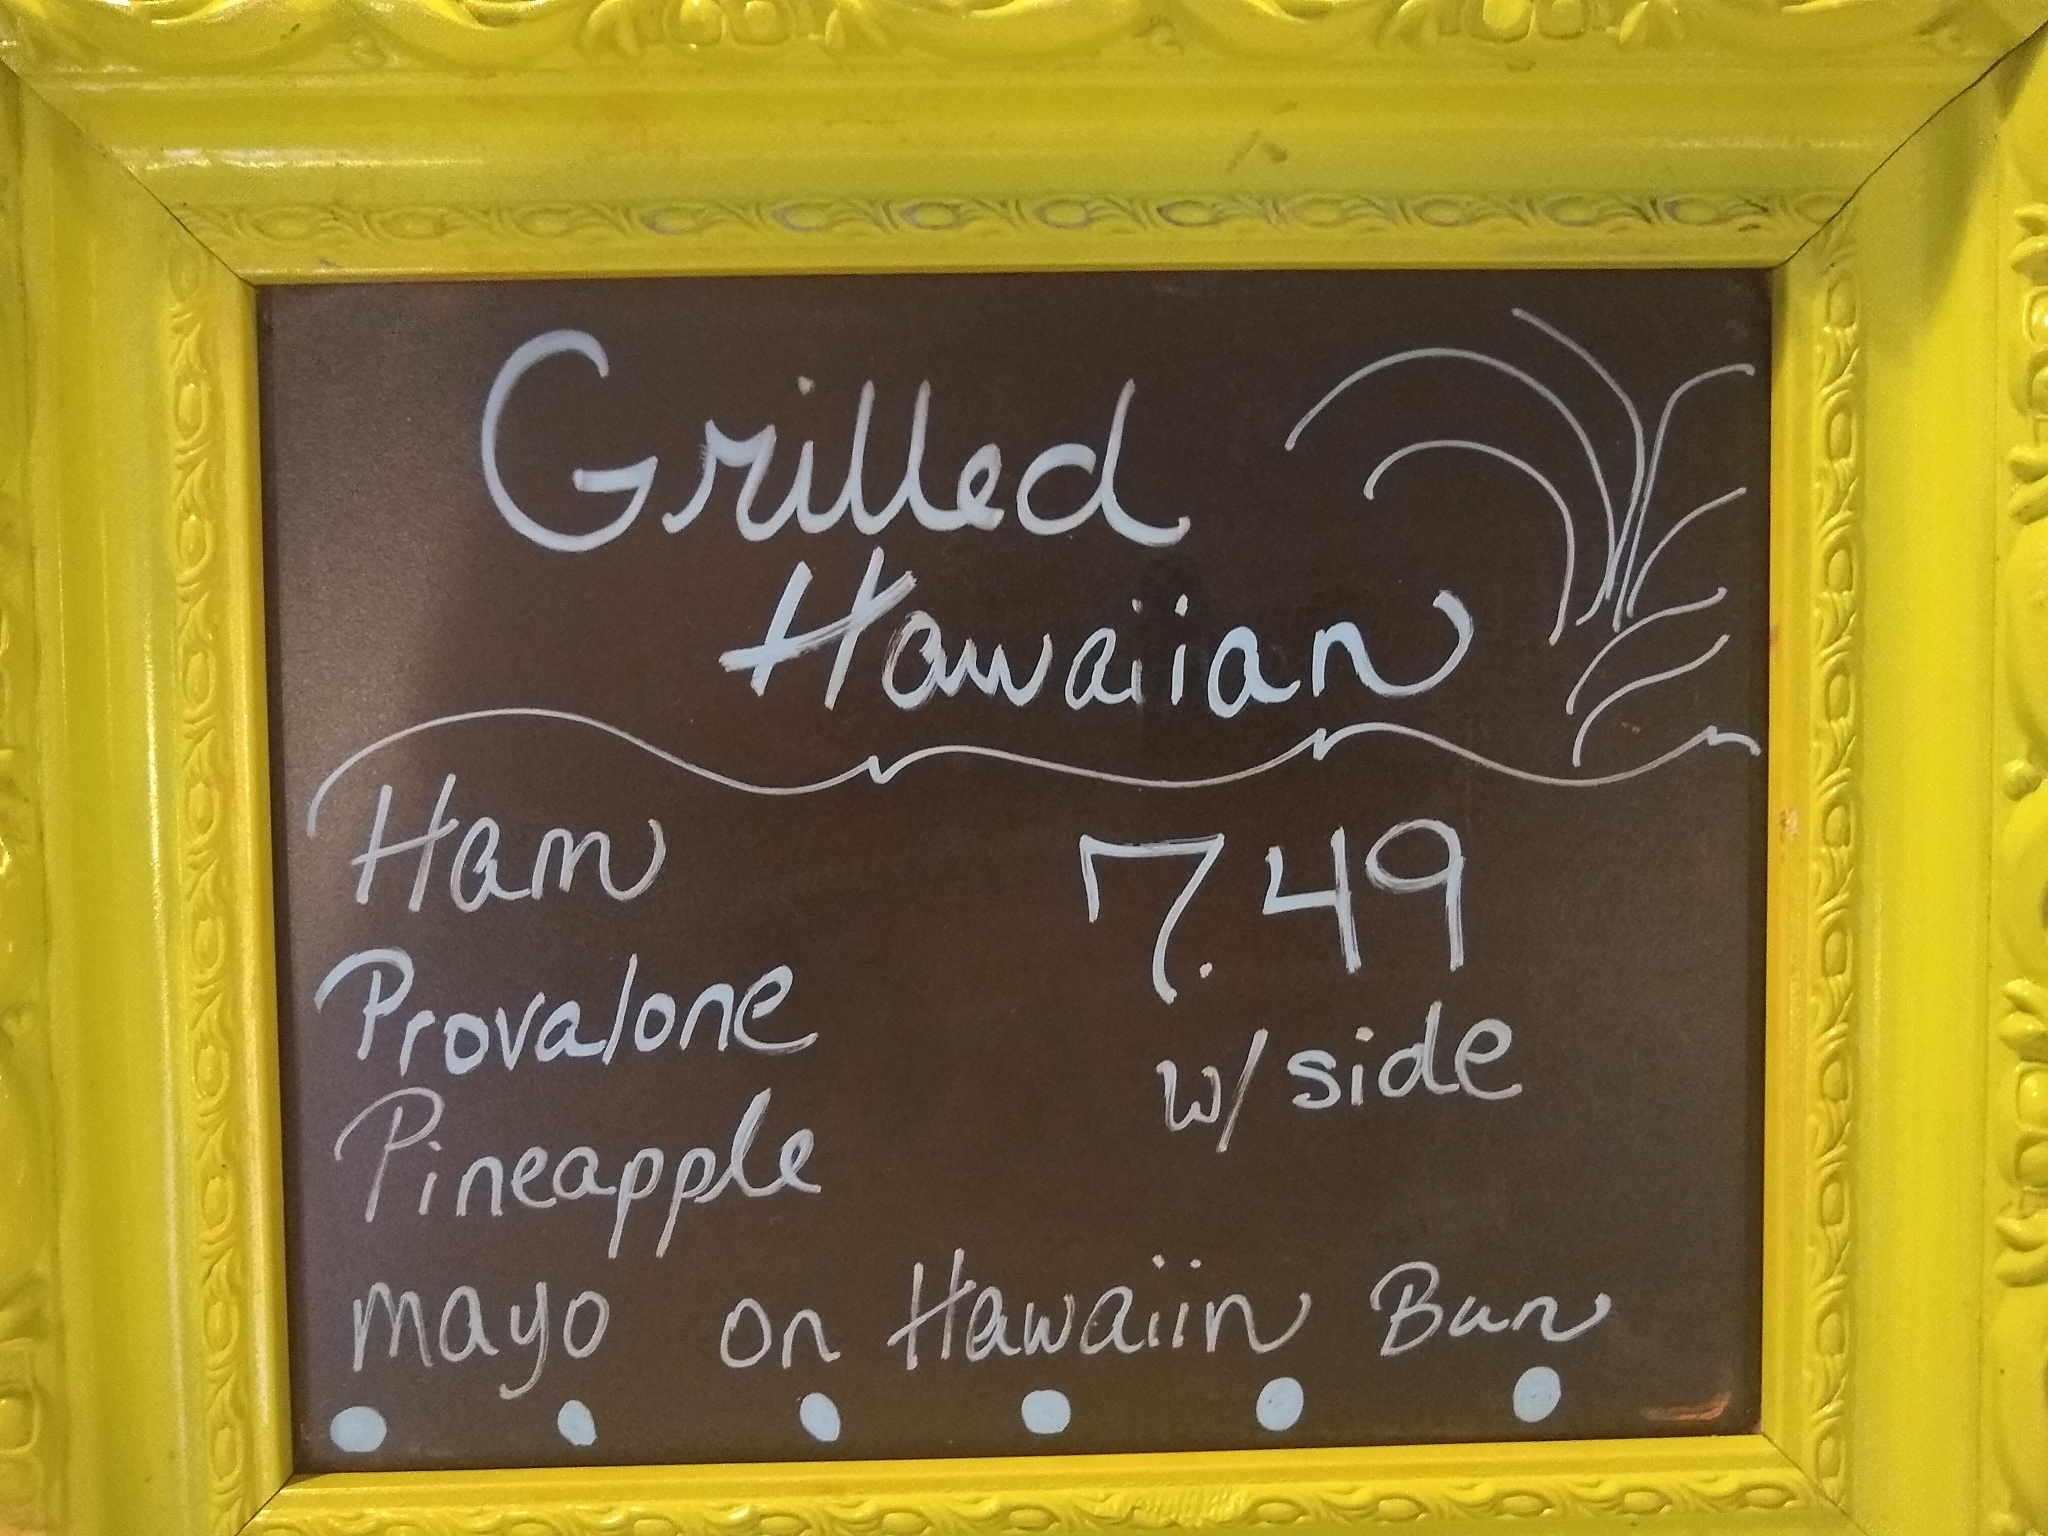 Grilled
Hawaiian
Ham
7.49
Provalone
w/ side
Pineapple
mayo on Hawaiin Bun